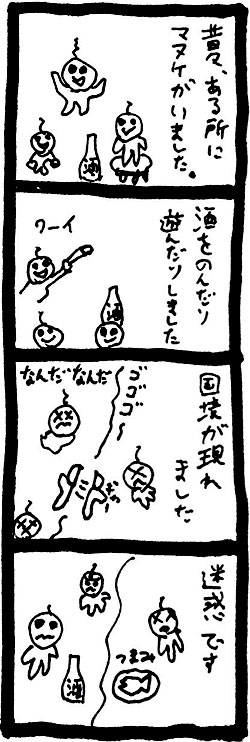 昔々、ある所に
マヌケがいました。
酒
酒をのんだり
遊んだりしました
ワーイ
酒
国境が現れ
ました
ゴゴゴ〜
なんだなんだ
迷惑です
つまみ
酒